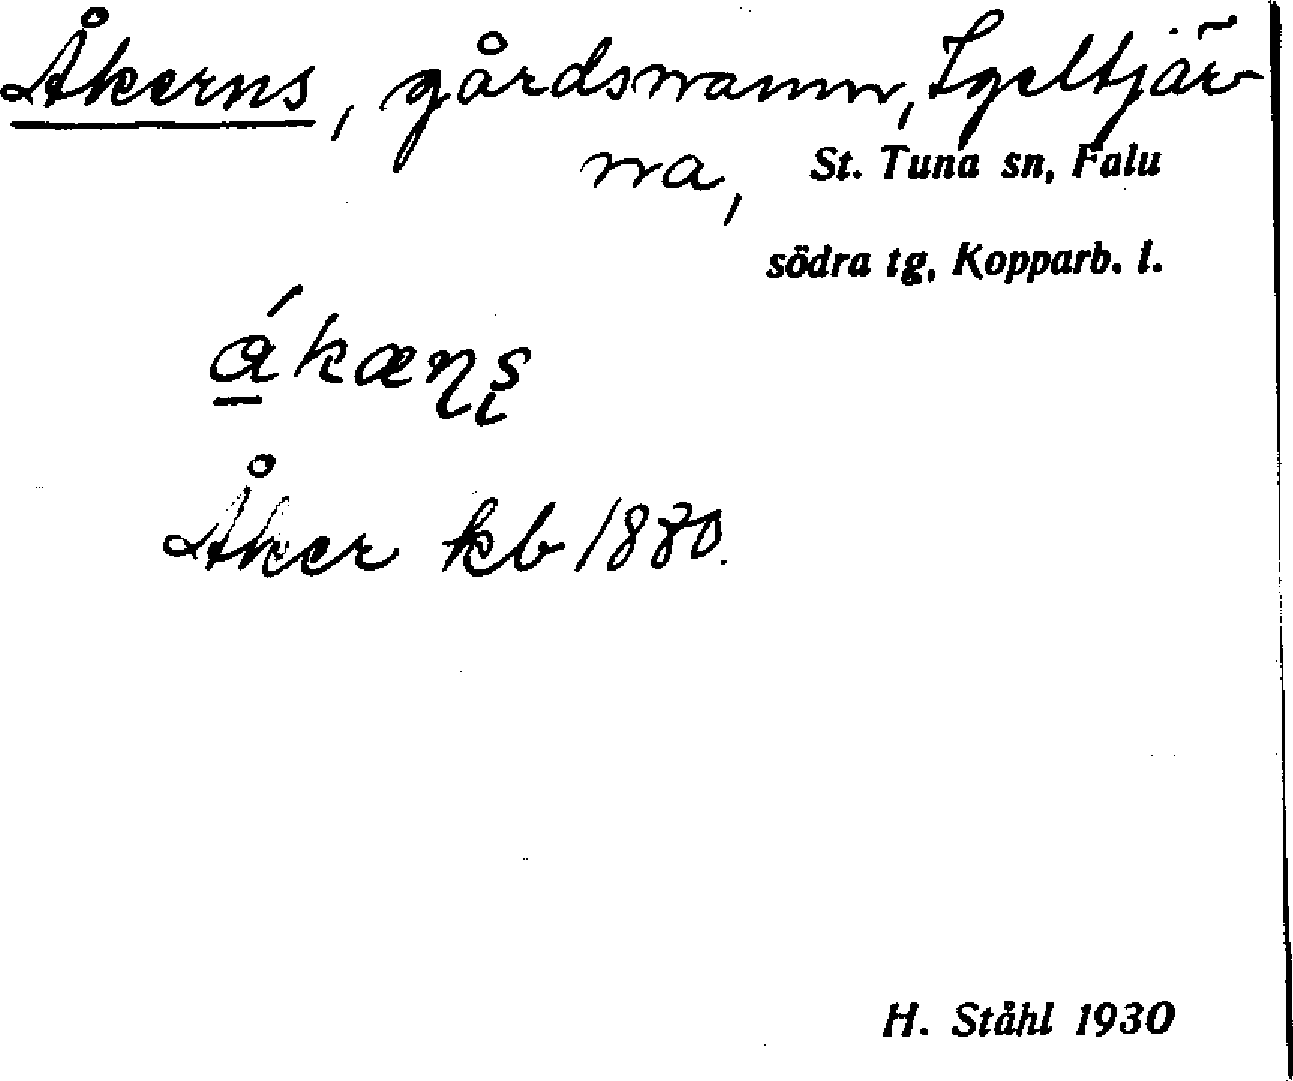 Åkerns, gårdsnamn, Igeltjär-
na, St. Tuna sn, Falu
södra tg, Kopparb. l.
ǻ̲kæɳʂ
Åker kb 1880.
H. Ståhl 1930